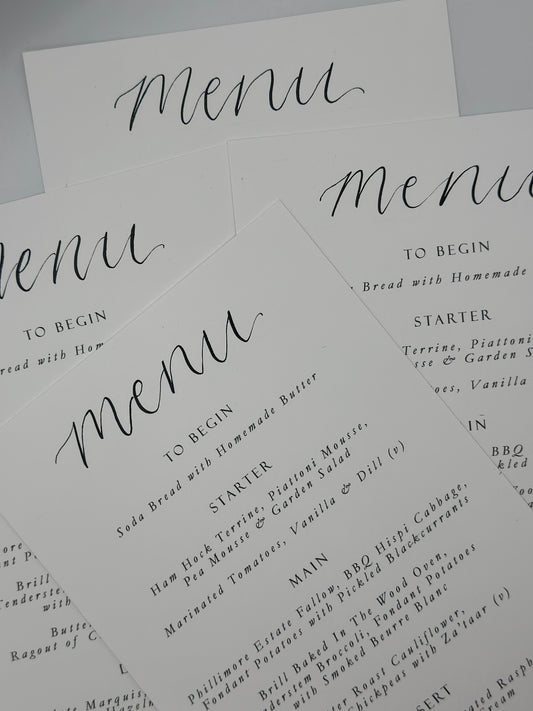 menu
menu
TO BEGIN
Bread with Homemade
STARTER
Terrine, Piattoni
& Garden
Vanilla
BBQ
menu
TO BEGIN
with
Brill
with
Ragout of
Marquis,
menu
TO BEGIN
Soda Bread with Homemade Butter
STARTER
Ham Hock Terrine, Piattoni Mousse,
Pea Mousse & Garden Salad
Marinated Tomatoes, Vanilla & Dill (v)
MAIN
Phillimore Estate Fallow, BBQ Hispi Cabbage,
Fondant Potatoes with Pickled Blackcurrants
Brill Baked In The Wood Oven,
Broccoli, Fondant Potatoes
with Smoked Beurre Blanc
Roast Cauliflower,
Chickpeas with Za'taar (v)